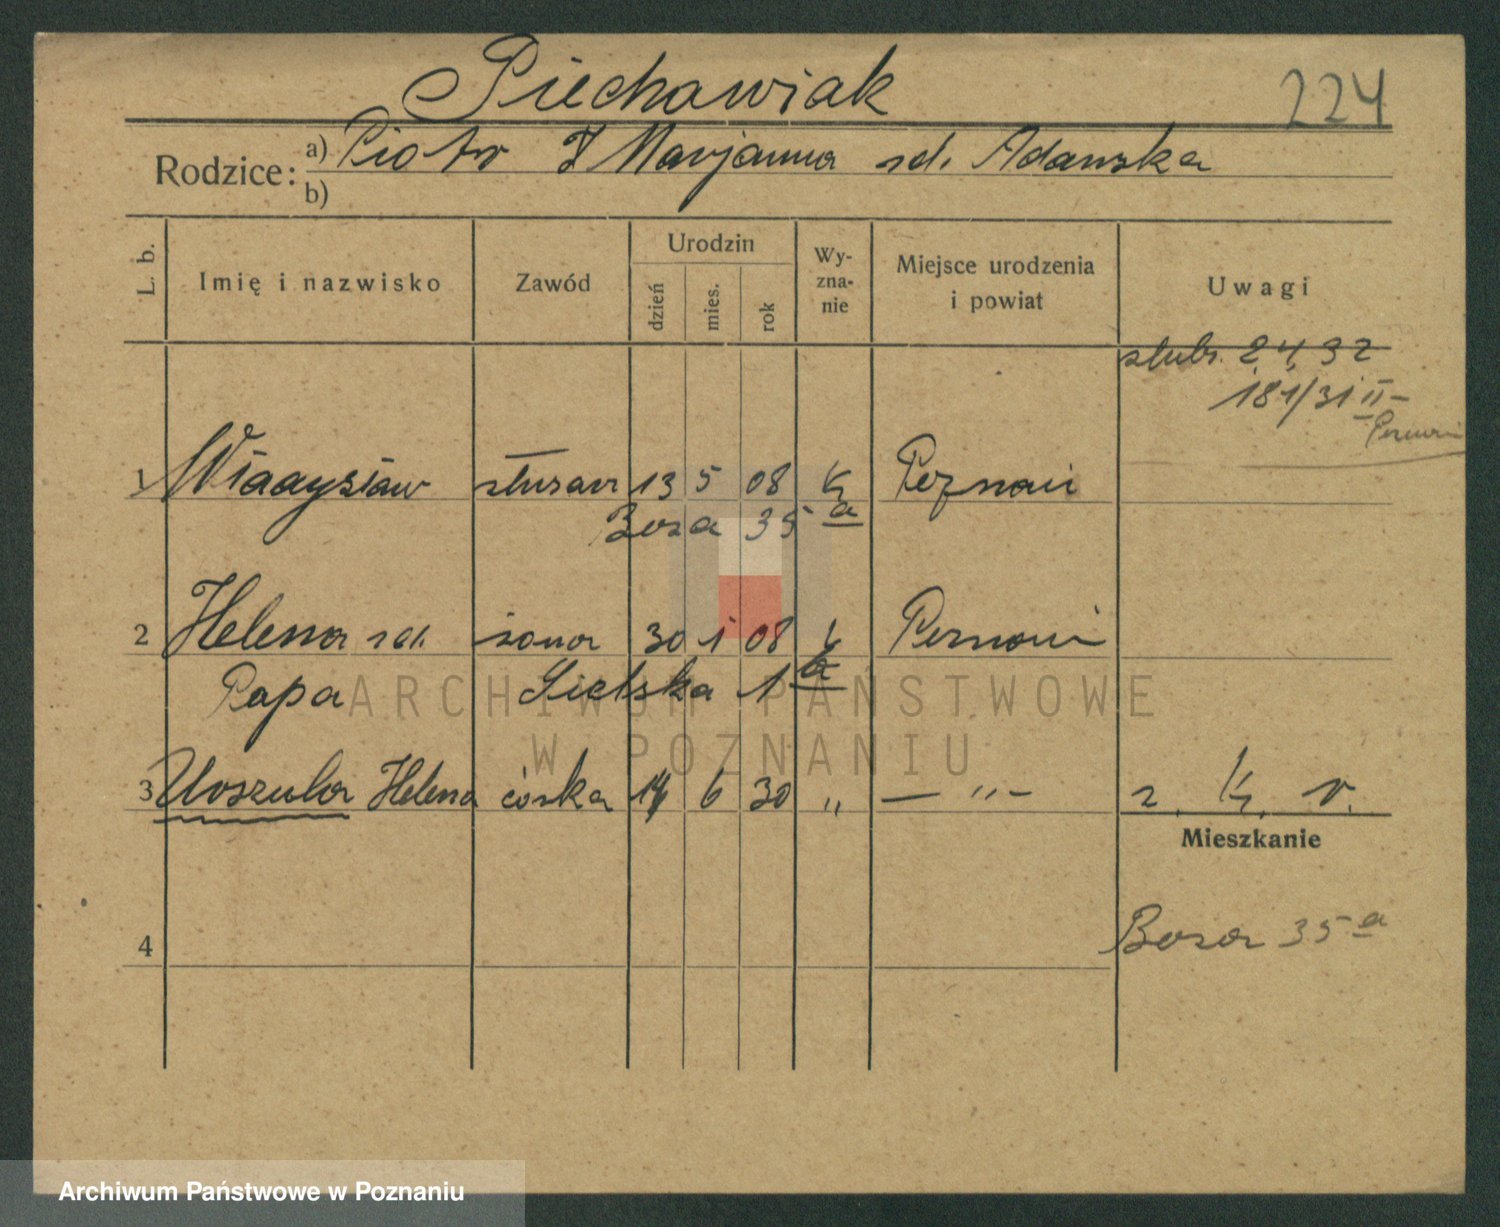 Piechowiak 224
Rodzice: a) Piotr i Marjanna zd. Adamska
b)
L. b. Imię i nazwisko Zawód Urodzin dzień mies. rok Wy-zna-nie Miejsce urodzenia i powiat Uwagi
ślub. 2,4,32
181/31 II
Poznań
1 Władysław ślusarz 13 5 08 k Poznań
Bosa 35 a
2 Helena zd. żona 30 1 08 k Poznań
Papa Sielska 1 a
ARCHIWUM PAŃSTWOWE
W POZNANIU
3 Urszula Helena córka 14 6 30 „ — „ — z. k. r.
Mieszkanie
4 Bosa 35 a
Archiwum Państwowe w Poznaniu